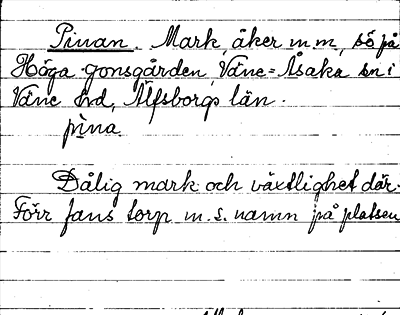 Pinan. Mark, åker m m, sö på
Höga Jonsgården, Väne-Åsaka sn i
Väne hd, Älfsborgs län.
pìna
Dålig mark och växtlighet där.
Förr fans torp m. s. namn på platsen